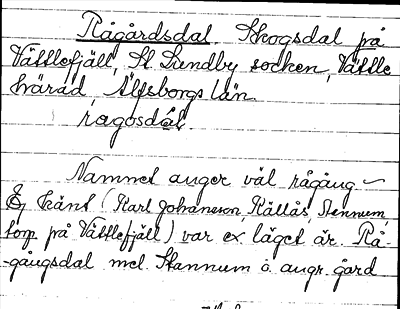 Rågårdsdal. Skogsdal på
Vättlefjäll, St. Lundby socken, Vättle
härad, Älfsborgs län.
ragosdal.
Namnet anger väl rågång
Ej känt (Karl Johansson, Kållås, Stennum
torp på Vättlefjäll) var ex läget är. Rå-
-gångsdal mel Stannum o. angr. gård